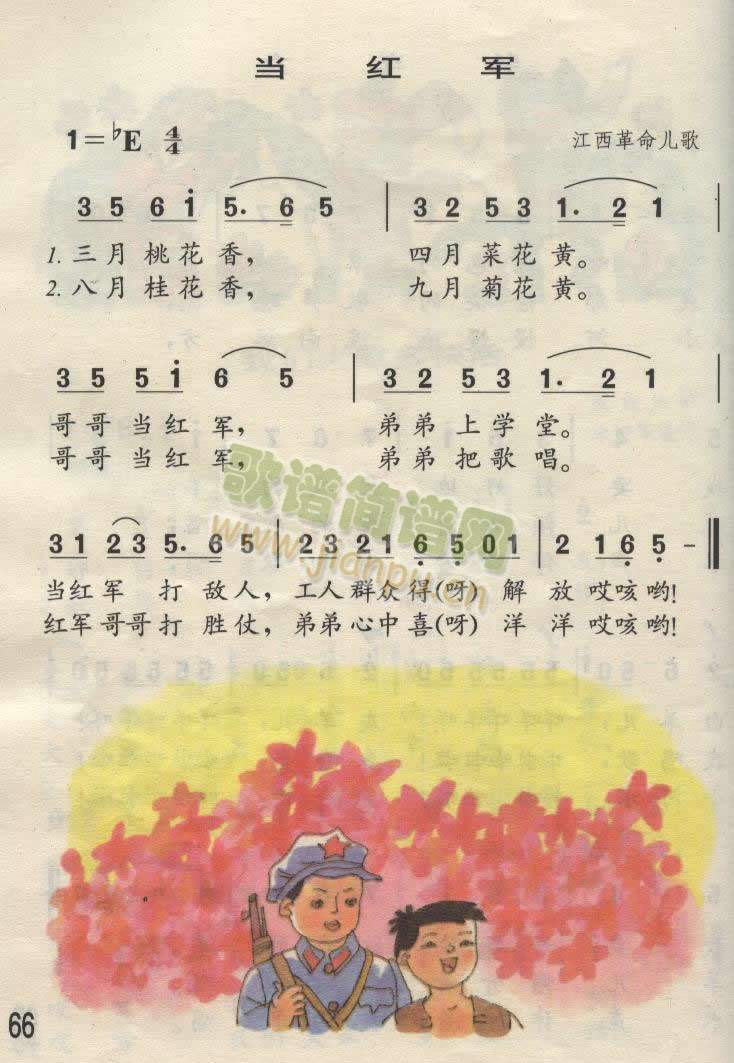 当 红 军
1=♭E 4/4
江西革命儿歌
3 5 6 i 5. 6 5 | 3 2 5 3 1. 2 1 |
1. 三月桃花香， 四月菜花黄。
2. 八月桂花香， 九月菊花黄。
3 5 5 i 6 5 | 3 2 5 3 1. 2 1 |
哥哥当红军， 弟弟上学堂。
哥哥当红军， 弟弟把歌唱。
歌谱简谱网
www.jianpu.cn
31 23 5. 6 5 | 23 21 6. 5. 01 | 2 16 5 - ‖
当红军 打 敌人，工人群众得(呀) 解 放 哎咳哟!
红军哥哥打 胜仗，弟弟心中喜(呀) 洋 洋 哎咳哟!
66